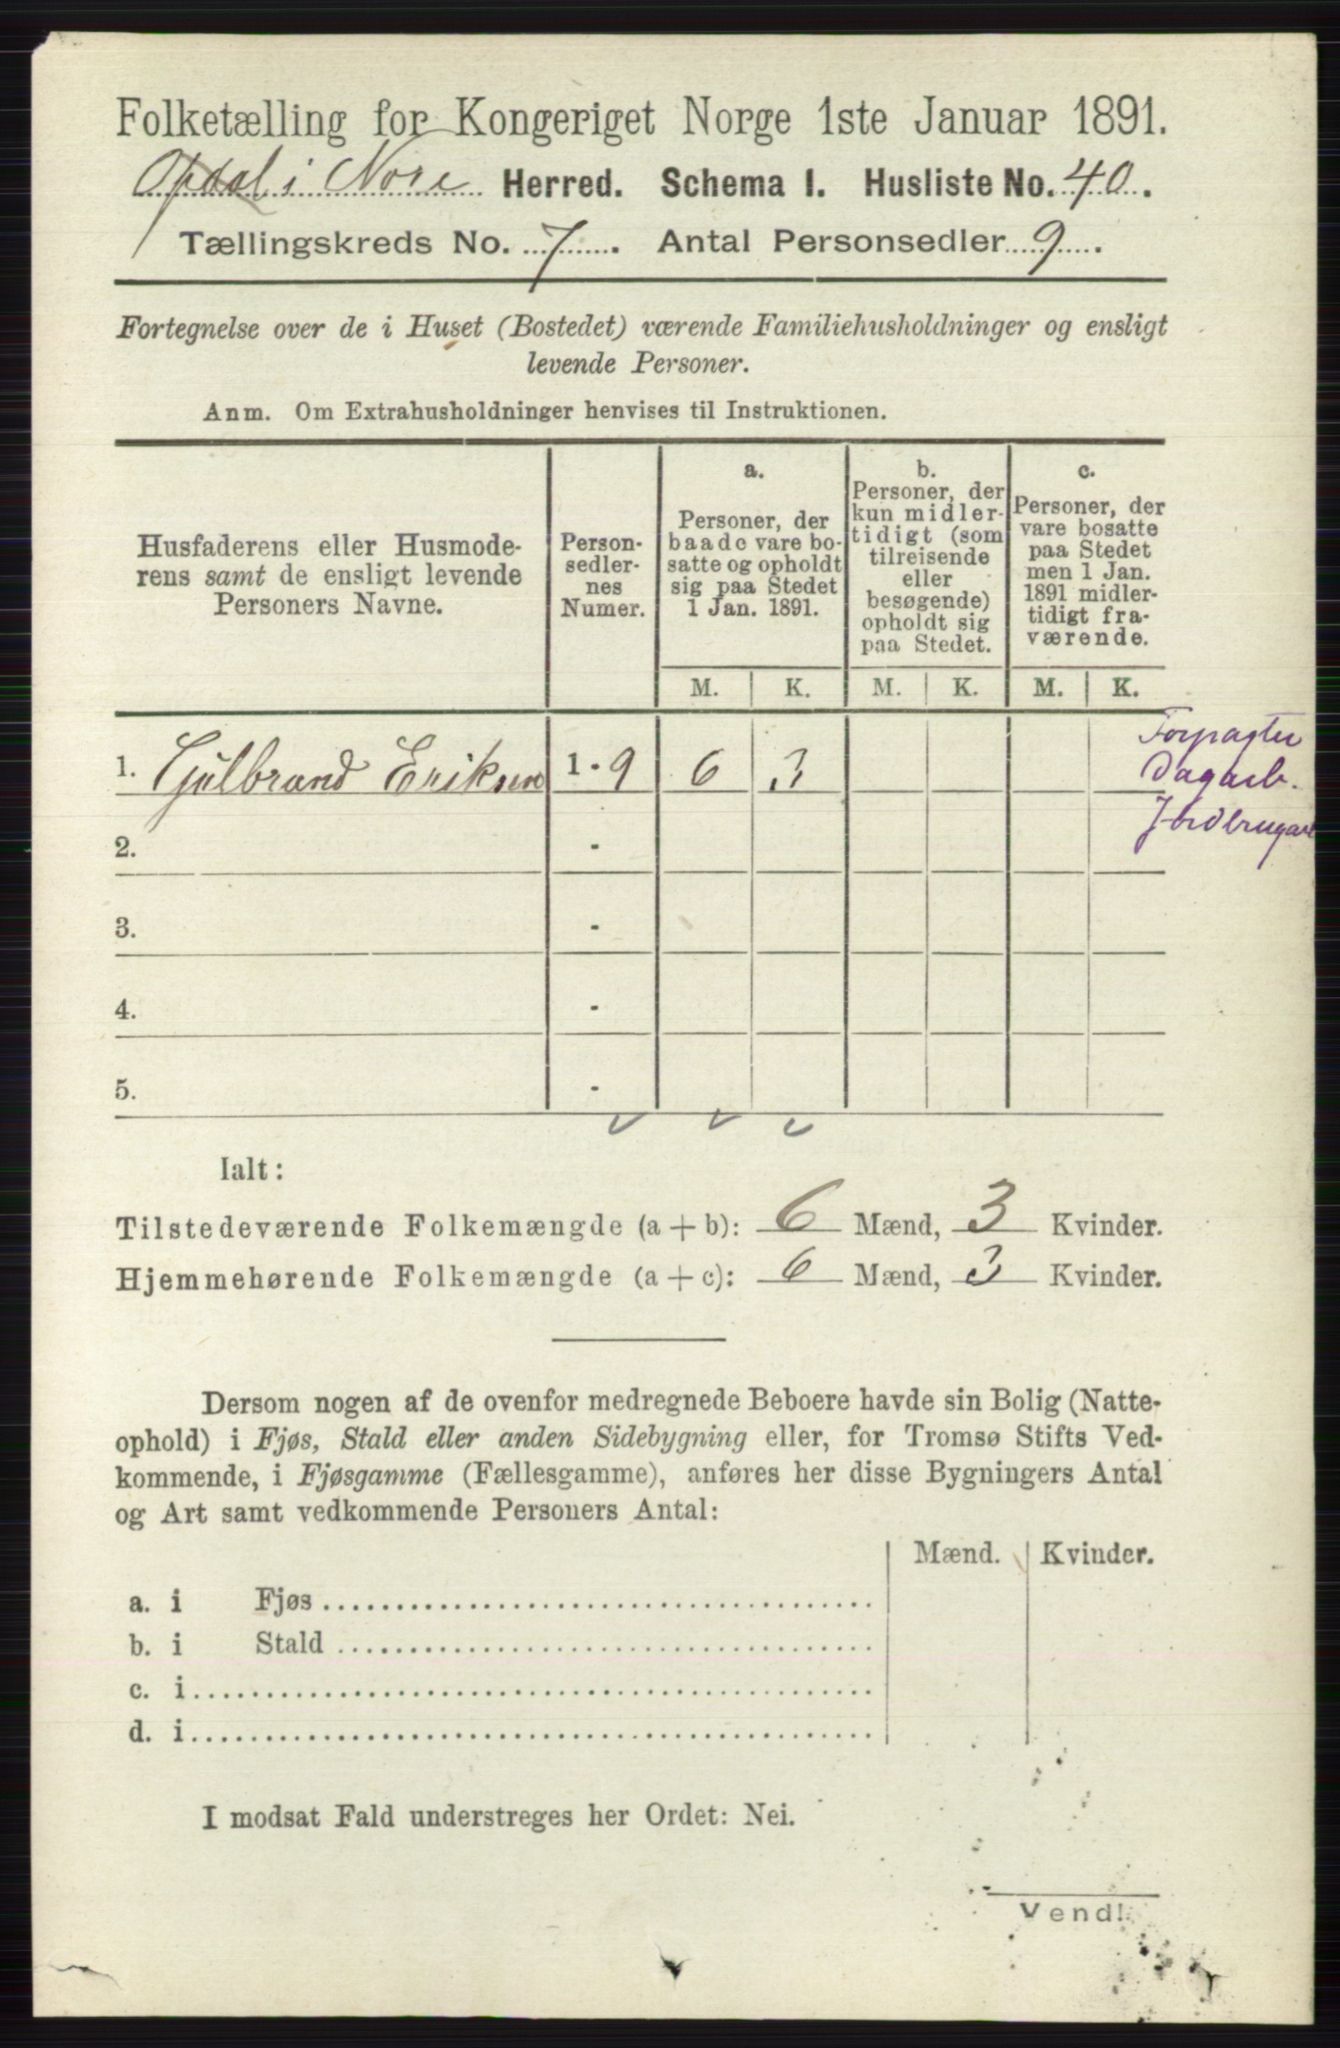 Folketælling for Kongeriget Norge 1ste Januar 1891.
Opdal i Nore Herred. Schema I. Husliste No. 40.
Tællingskreds No. 7. Antal Personsedler 9.
Fortegnelse over de i Huset (Bostedet) værende Familiehusholdninger og ensligt
levende Personer.
Anm. Om Extrahusholdninger henvises til Instruktionen.
Husfaderens eller Husmode-
rens samt de ensligt levende
Personers Navne.
Person-
sedler-
nes
Numer.
a.
Personer, der
baade vare bo-
satte og opholdt
sig paa Stedet
1 Jan. 1891.
b.
Personer, der
kun midler-
tidigt (som
tilreisende
eller
besøgende)
opholdt sig
paa Stedet.
c.
Personer, der
vare bosatte
paa Stedet
men 1 Jan.
1891 midler-
tidigt fra-
værende.
M. K. M. K. M. K.
1. Gulbrand Eriksen 1 - 9 6 3
Forpagter
Dagarb.
Jordbrugarb
2. -
3. -
4. -
5. -
Ialt:
Tilstedeværende Folkemængde (a + b): 6 Mænd, 3 Kvinder.
Hjemmehørende Folkemængde (a + c): 6 Mænd, 3 Kvinder.
Dersom nogen af de ovenfor medregnede Beboere havde sin Bolig (Natte-
ophold) i Fjøs, Stald eller anden Sidebygning eller, for Tromsø Stifts Ved-
kommende, i Fjøsgamme (Fællesgamme), anføres her disse Bygningers Antal
og Art samt vedkommende Personers Antal:
Mænd. Kvinder.
a. i Fjøs
b. i Stald
c. i
d. i
I modsat Fald understreges her Ordet: Nei.
Vend!